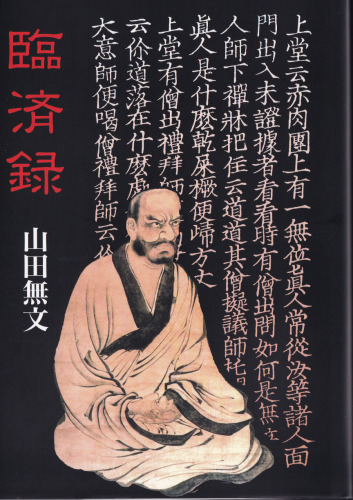 臨済録
山田無文
上堂云赤肉團上有一無位眞人常從汝等諸人面
門出入未證據者看看時有僧出問如何是無
人師下禪牀把住云道道其僧擬議師托
眞人是什麼乾屎橛便歸方丈
上堂有僧出禮拜師
云伱道落在什麼處
大意師便喝僧禮拜師云伱